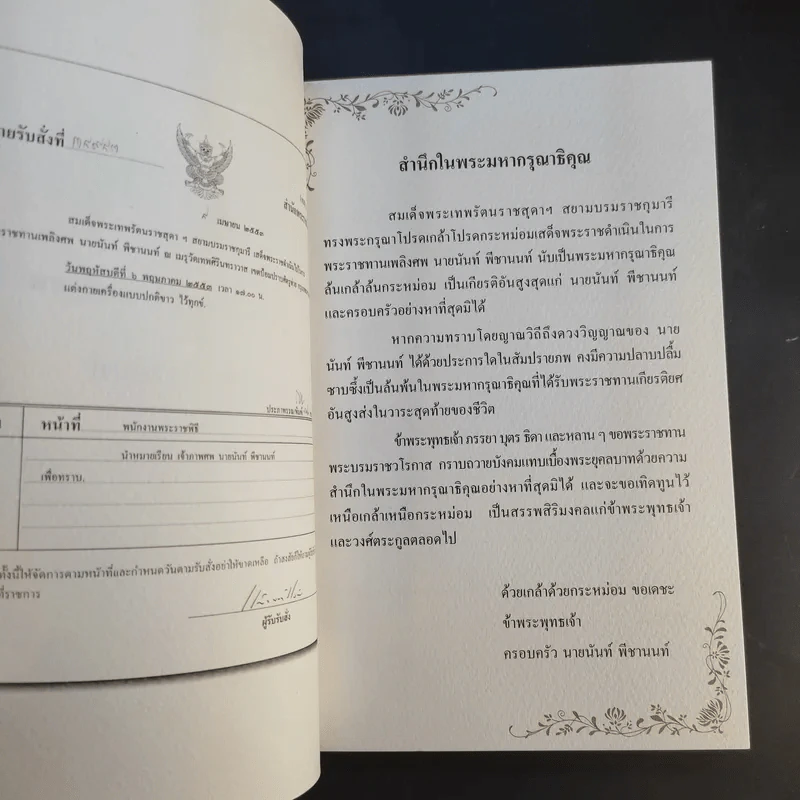 ายรับสั่งที่
๙ เมษายน ๒๕๕๓
สมเด็จพระเทพรัตนราชสุดา ฯ สยามบรมราชกุมารี เสด็จพระราชดำเนินไปในการ
ราชทานเพลิงศพ นายนันท์ พีชานนท์ ณ เมรุวัดเทพศิรินทราวาส
วันพฤหัสบดีที่ ๖ พฤษภาคม ๒๕๕๓ เวลา ๑๗.๐๐ น.
แต่งกายเครื่องแบบปกติขาว ไว้ทุกข์.
หน้าที่ พนักงานพระราชพิธี
นำหมายเรียน เจ้าภาพศพ นายนันท์ พีชานนท์
เพื่อทราบ.
ทั้งนี้ให้จัดการตามหน้าที่และกำหนดวันตามรับสั่งอย่าให้ขาดเหลือ ถ้าสงสัยก็ให้
ที่ราชการ
ผู้รับรับสั่ง
สำนึกในพระมหากรุณาธิคุณ
สมเด็จพระเทพรัตนราชสุดาฯ สยามบรมราชกุมารี
ทรงพระกรุณาโปรดเกล้าโปรดกระหม่อมเสด็จพระราชดำเนินในการ
พระราชทานเพลิงศพ นายนันท์ พีชานนท์ นับเป็นพระมหากรุณาธิคุณ
ล้นเกล้าล้นกระหม่อม เป็นเกียรติอันสูงสุดแก่ นายนันท์ พีชานนท์
และครอบครัวอย่างหาที่สุดมิได้
หากความทราบโดยญาณวิถีถึงดวงวิญญาณของ นาย
นันท์ พีชานนท์ ได้ด้วยประการใดในสัมปรายภพ คงมีความปลาบปลื้ม
ซาบซึ้งเป็นล้นพ้นในพระมหากรุณาธิคุณที่ได้รับพระราชทานเกียรติยศ
อันสูงส่งในวาระสุดท้ายของชีวิต
ข้าพระพุทธเจ้า ภรรยา บุตร ธิดา และหลาน ๆ ขอพระราชทาน
พระบรมราชวโรกาส กราบถวายบังคมแทบเบื้องพระยุคลบาทด้วยความ
สำนึกในพระมหากรุณาธิคุณอย่างหาที่สุดมิได้ และจะขอเทิดทูนไว้
เหนือเกล้าเหนือกระหม่อม เป็นสรรพสิริมงคลแก่ข้าพระพุทธเจ้า
และวงศ์ตระกูลตลอดไป
ด้วยเกล้าด้วยกระหม่อม ขอเดชะ
ข้าพระพุทธเจ้า
ครอบครัว นายนันท์ พีชานนท์